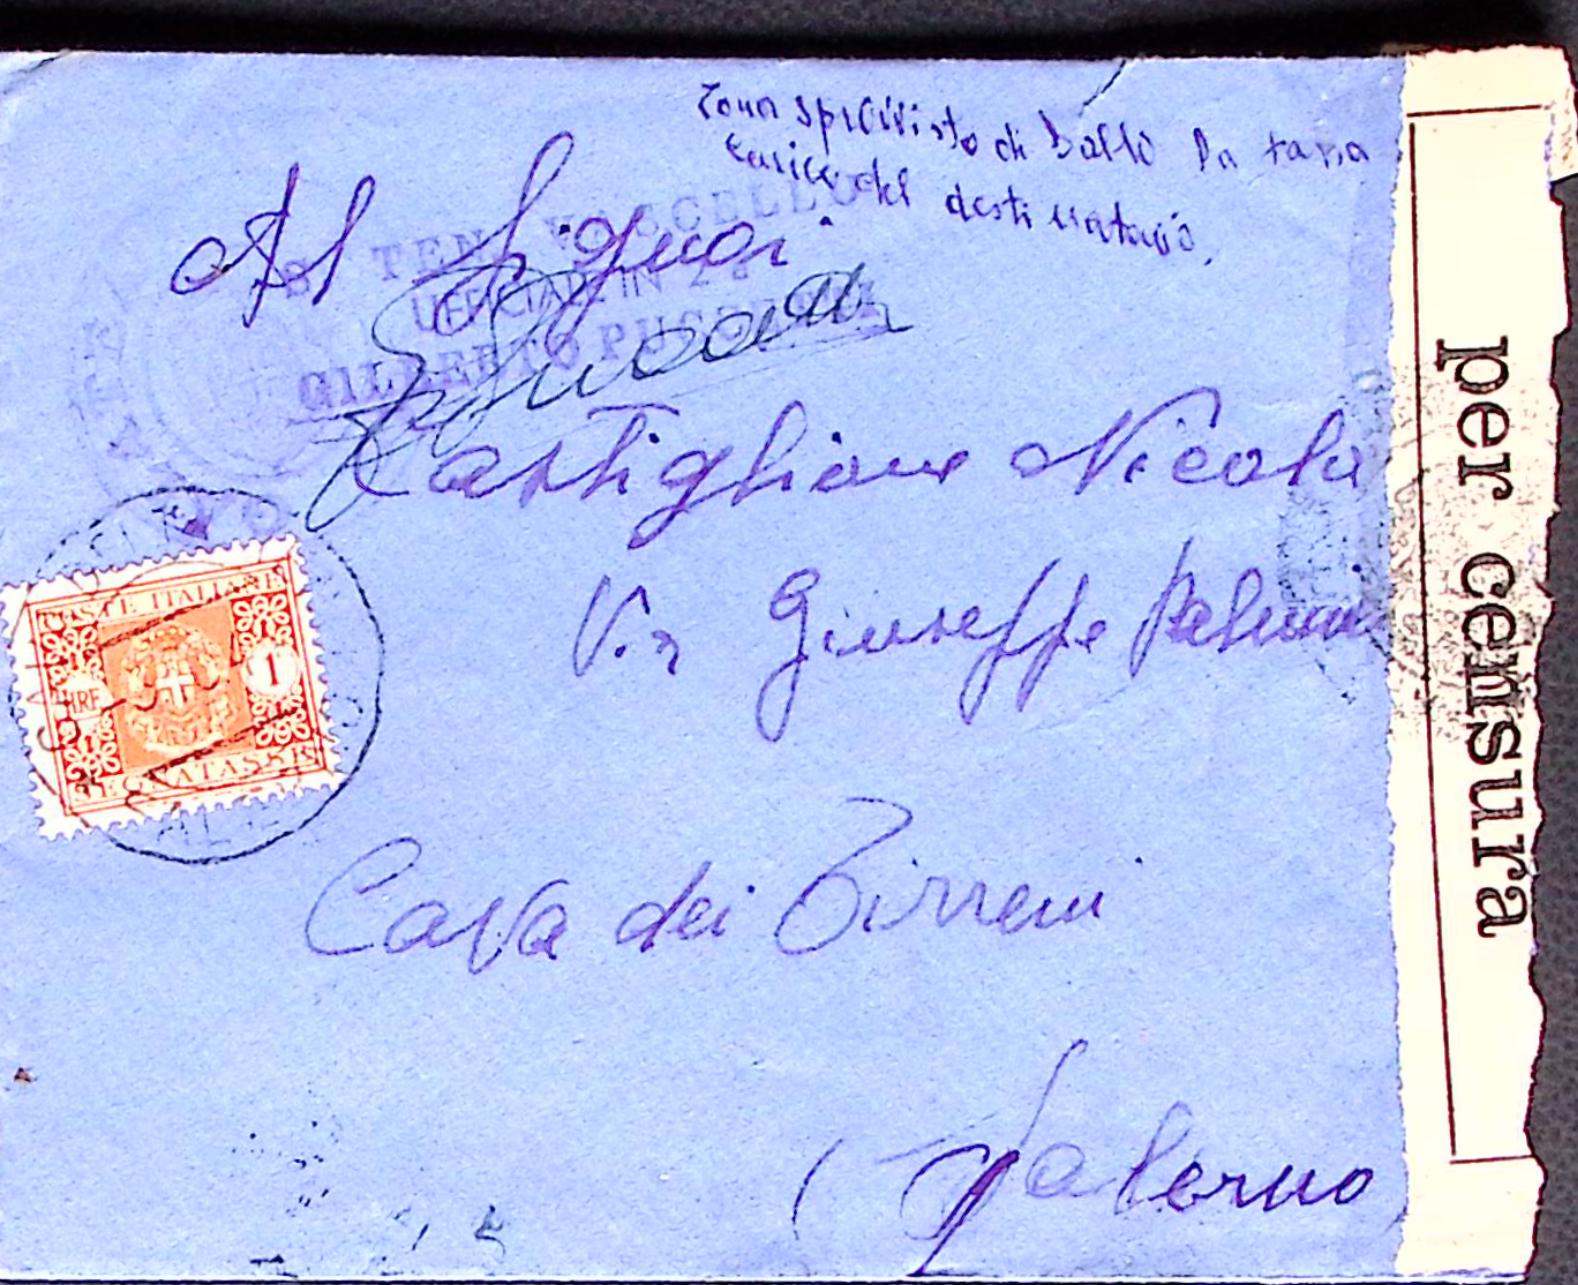 Zona sprovvisto di Bollo la tassa
carico del destinatario.
Al Signor
S TEN VASCELLO
UFFICIALE IN 2ª
GILBERTO
Castiglione Nicola
Via Giuseppe Palumbo
POSTE ITALIANE
1
LIRE
SEGNATASSE
Cava dei Tirreni
(Salerno
per censura